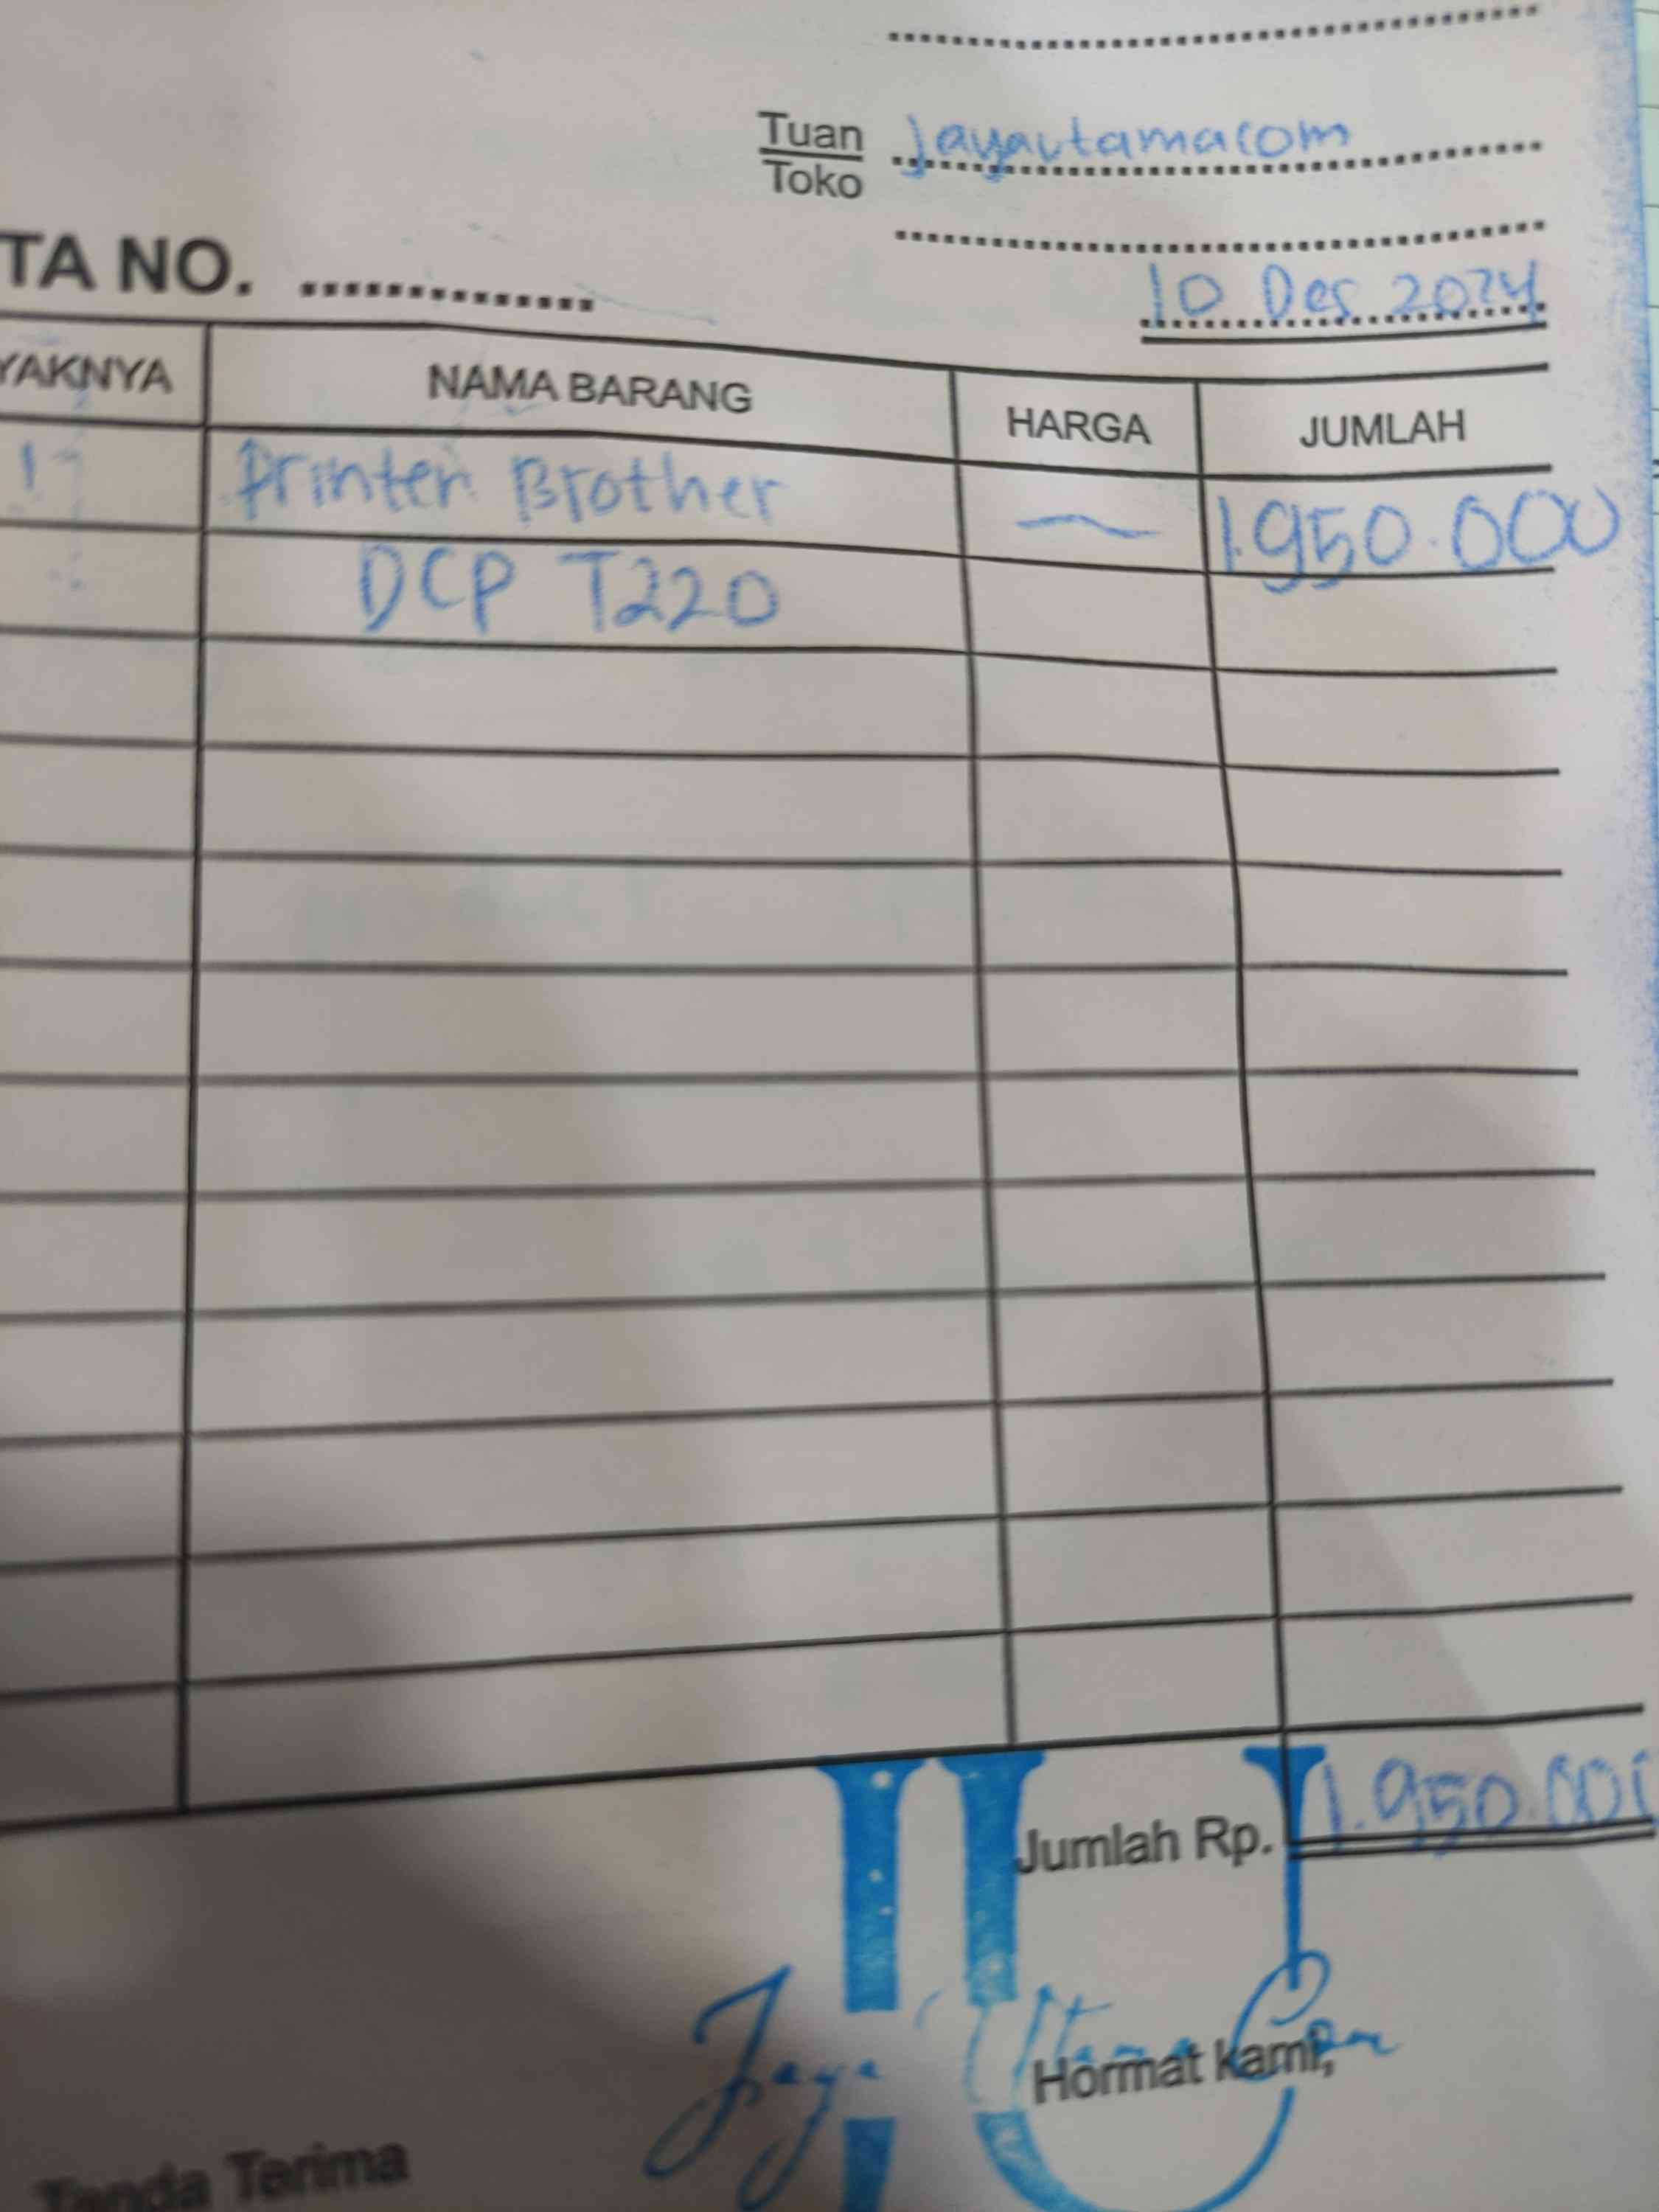 Tuan Jayautamacom
Toko
TA NO.
10 Des 2024
YAKNYA NAMA BARANG HARGA JUMLAH
1 Printer Brother — 1.950.000
DCP T220
Jumlah Rp. 1.950.000
Jaya Utama Com
Hormat kami,
Tanda Terima